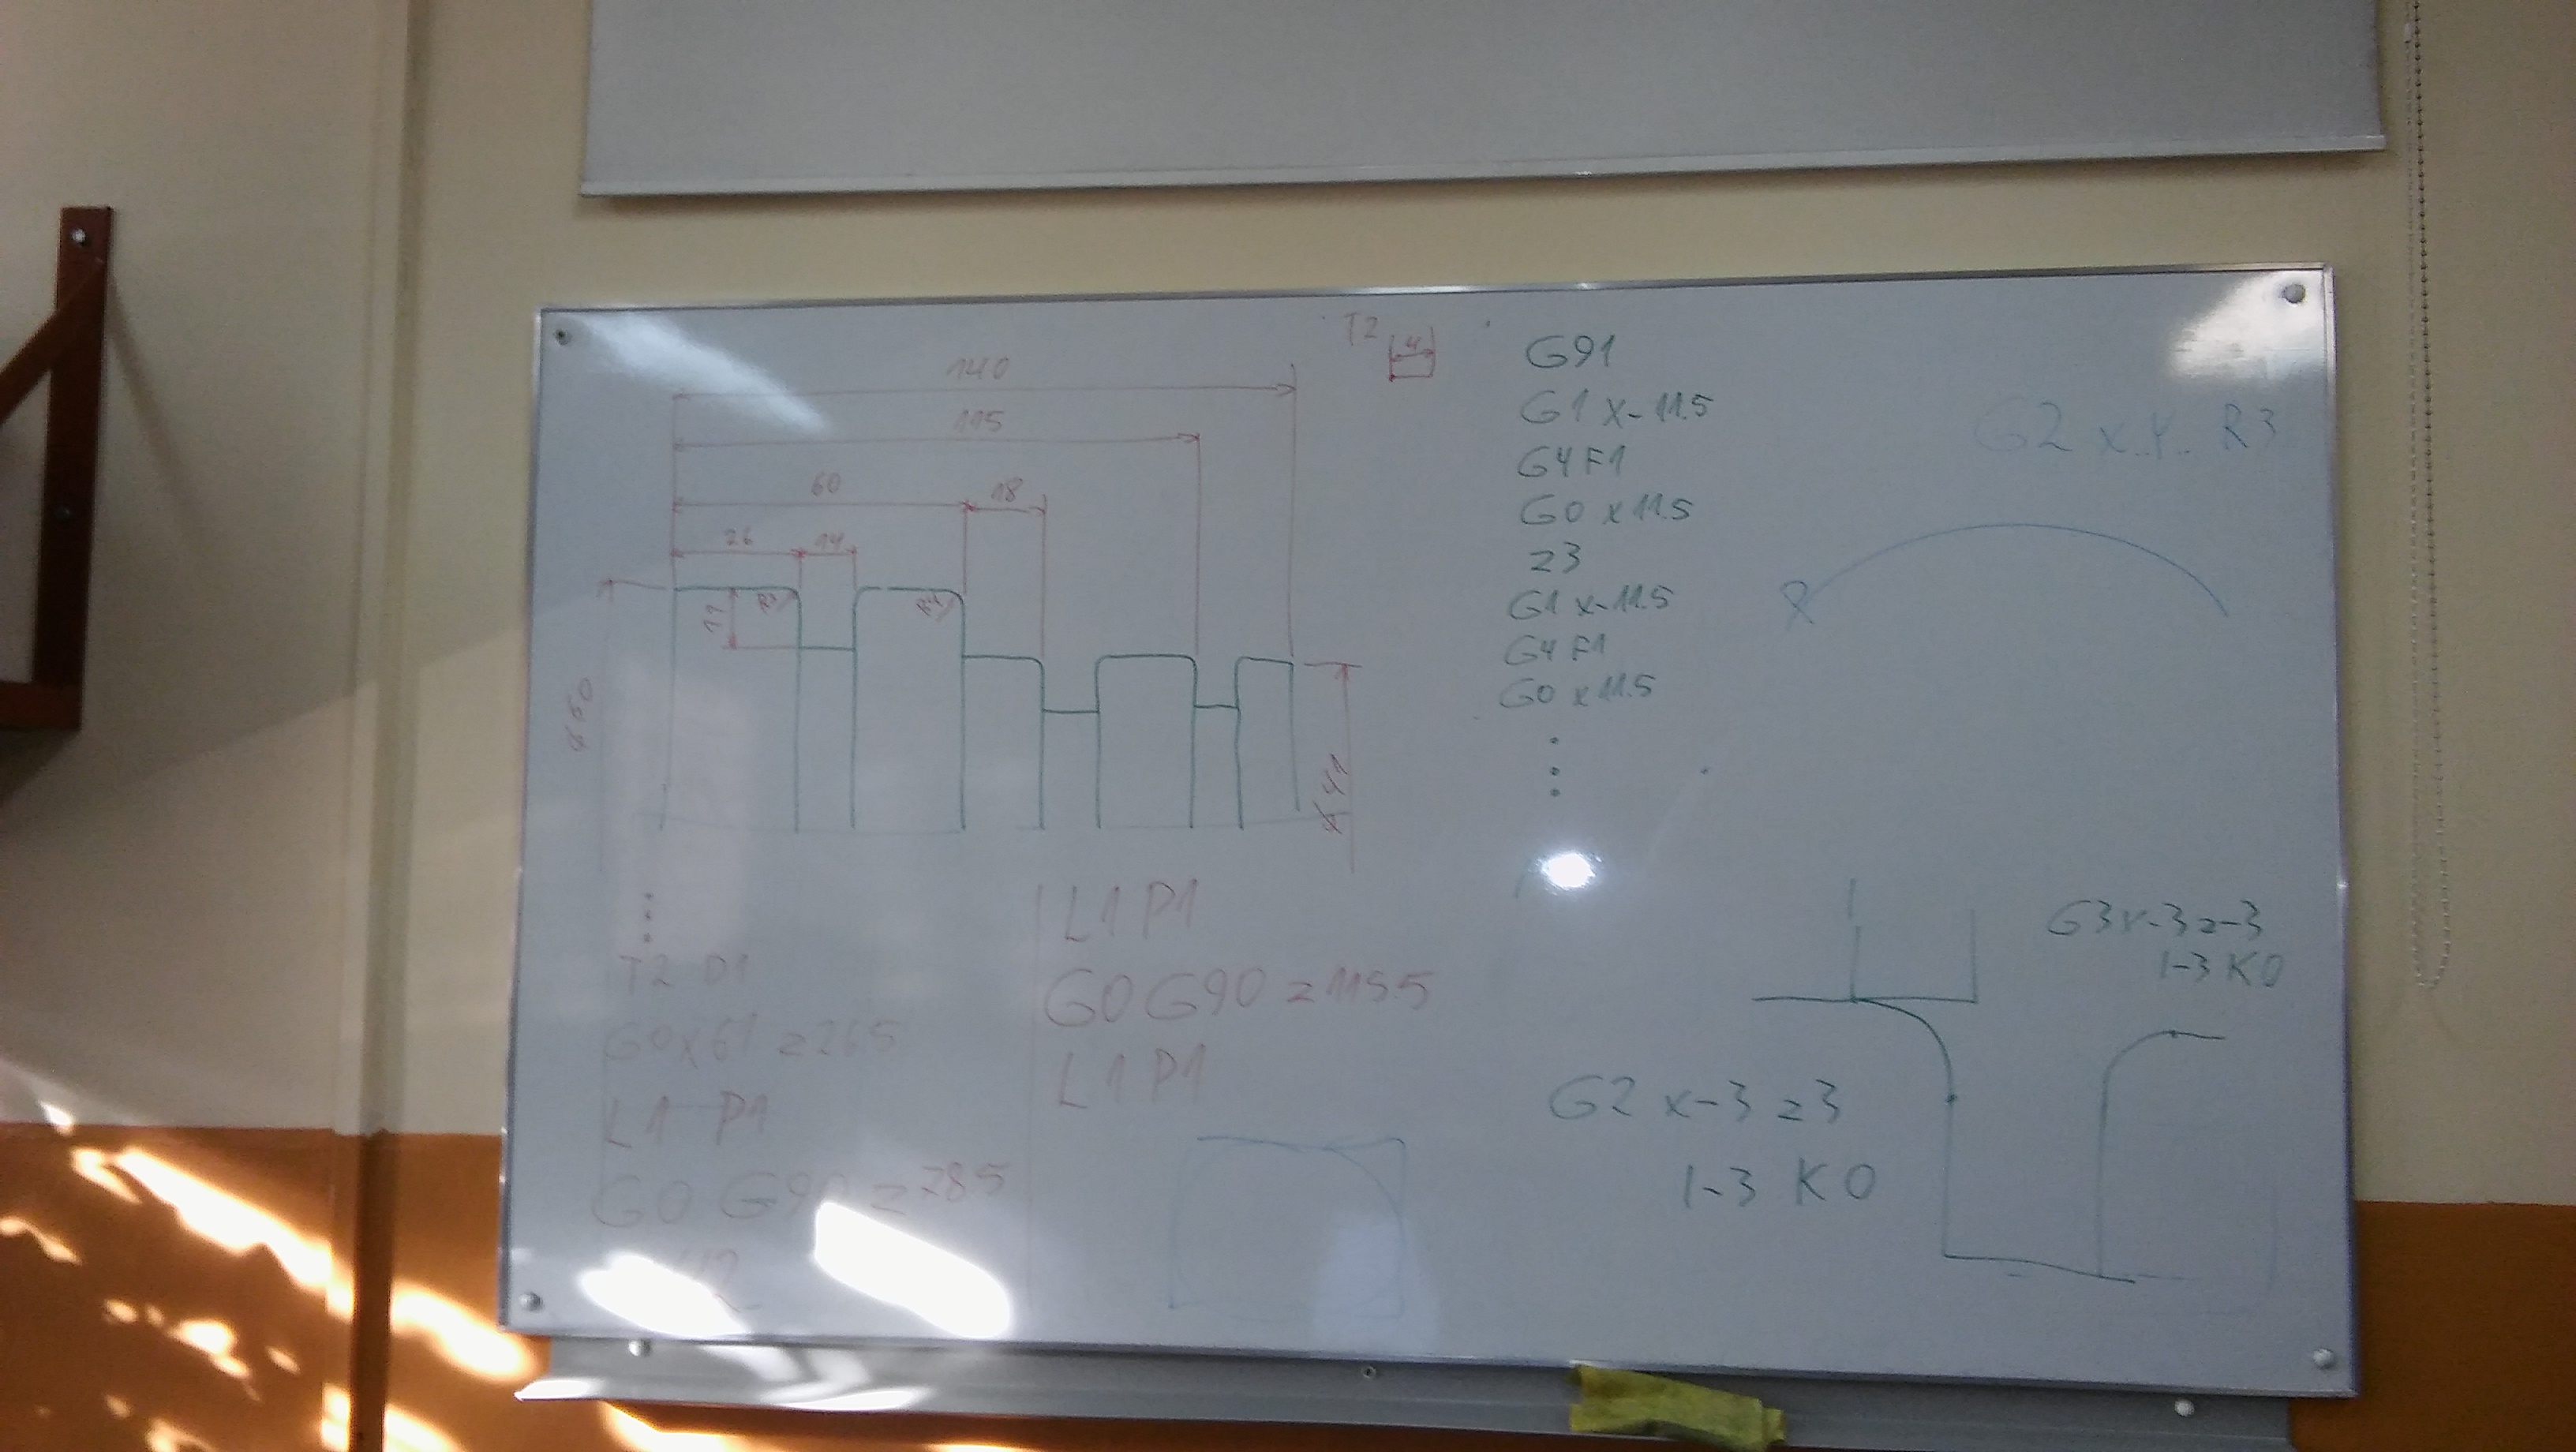 T2
4
140
115
60
18
26
14
11
R3
ø60
ø41
G91
G1 x-11.5
G4 F1
G0 x11.5
z3
G1 x-11.5
G4 F1
G0 x11.5
G2 x..Y.. R3
T2 D1
G0 x61 z26.5
L1 P1
G0 G90 z785
L1 P1
G0 G90 z115.5
L1 P1
G3 x-3 z-3
I-3 K0
G2 x-3 z3
I-3 K0